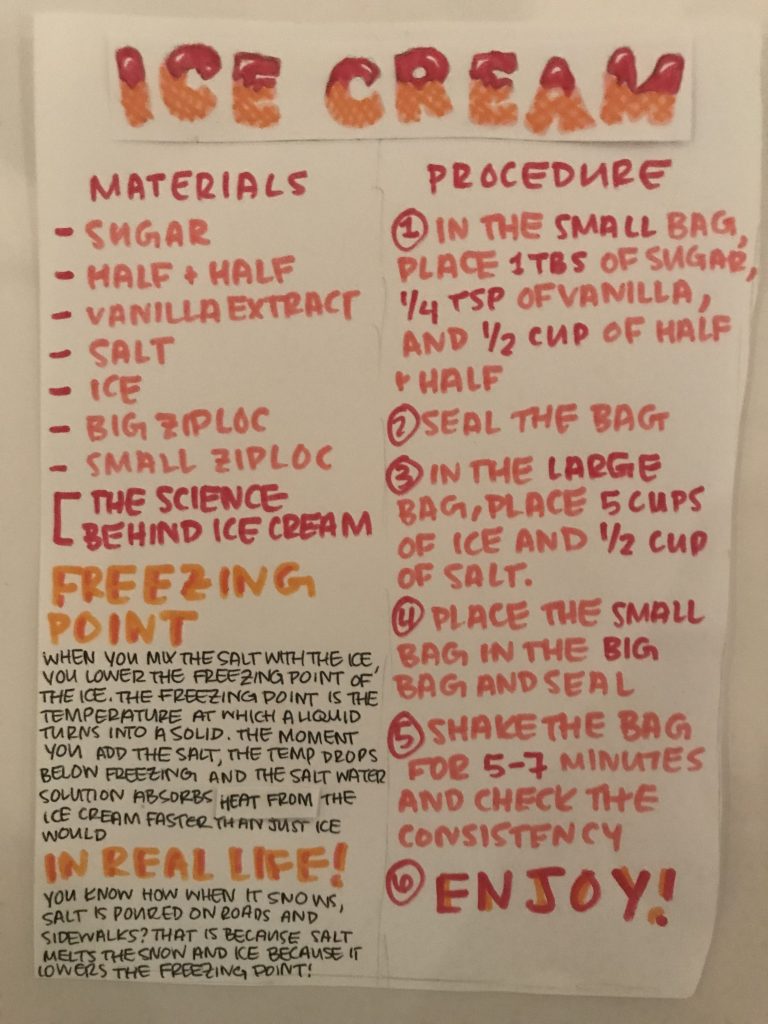 ICE CREAM
MATERIALS
- SUGAR
- HALF + HALF
- VANILLA EXTRACT
- SALT
- ICE
- BIG ZIPLOC
- SMALL ZIPLOC
[ THE SCIENCE
BEHIND ICE CREAM
FREEZING
POINT
WHEN YOU MIX THE SALT WITH THE ICE,
YOU LOWER THE FREEZING POINT OF
THE ICE. THE FREEZING POINT IS THE
TEMPERATURE AT WHICH A LIQUID
TURNS INTO A SOLID. THE MOMENT
YOU ADD THE SALT, THE TEMP DROPS
BELOW FREEZING AND THE SALT WATER
SOLUTION ABSORBS HEAT FROM THE
ICE CREAM FASTER THAN JUST ICE
WOULD
IN REAL LIFE!
YOU KNOW HOW WHEN IT SNOWS,
SALT IS POURED ON ROADS AND
SIDEWALKS? THAT IS BECAUSE SALT
MELTS THE SNOW AND ICE BECAUSE IT
LOWERS THE FREEZING POINT!
PROCEDURE
① IN THE SMALL BAG,
PLACE 1 TBS OF SUGAR,
1/4 TSP OF VANILLA,
AND 1/2 CUP OF HALF
+ HALF
② SEAL THE BAG
③ IN THE LARGE
BAG, PLACE 5 CUPS
OF ICE AND 1/2 CUP
OF SALT.
④ PLACE THE SMALL
BAG IN THE BIG
BAG AND SEAL
⑤ SHAKE THE BAG
FOR 5-7 MINUTES
AND CHECK THE
CONSISTENCY
⑥ ENJOY!